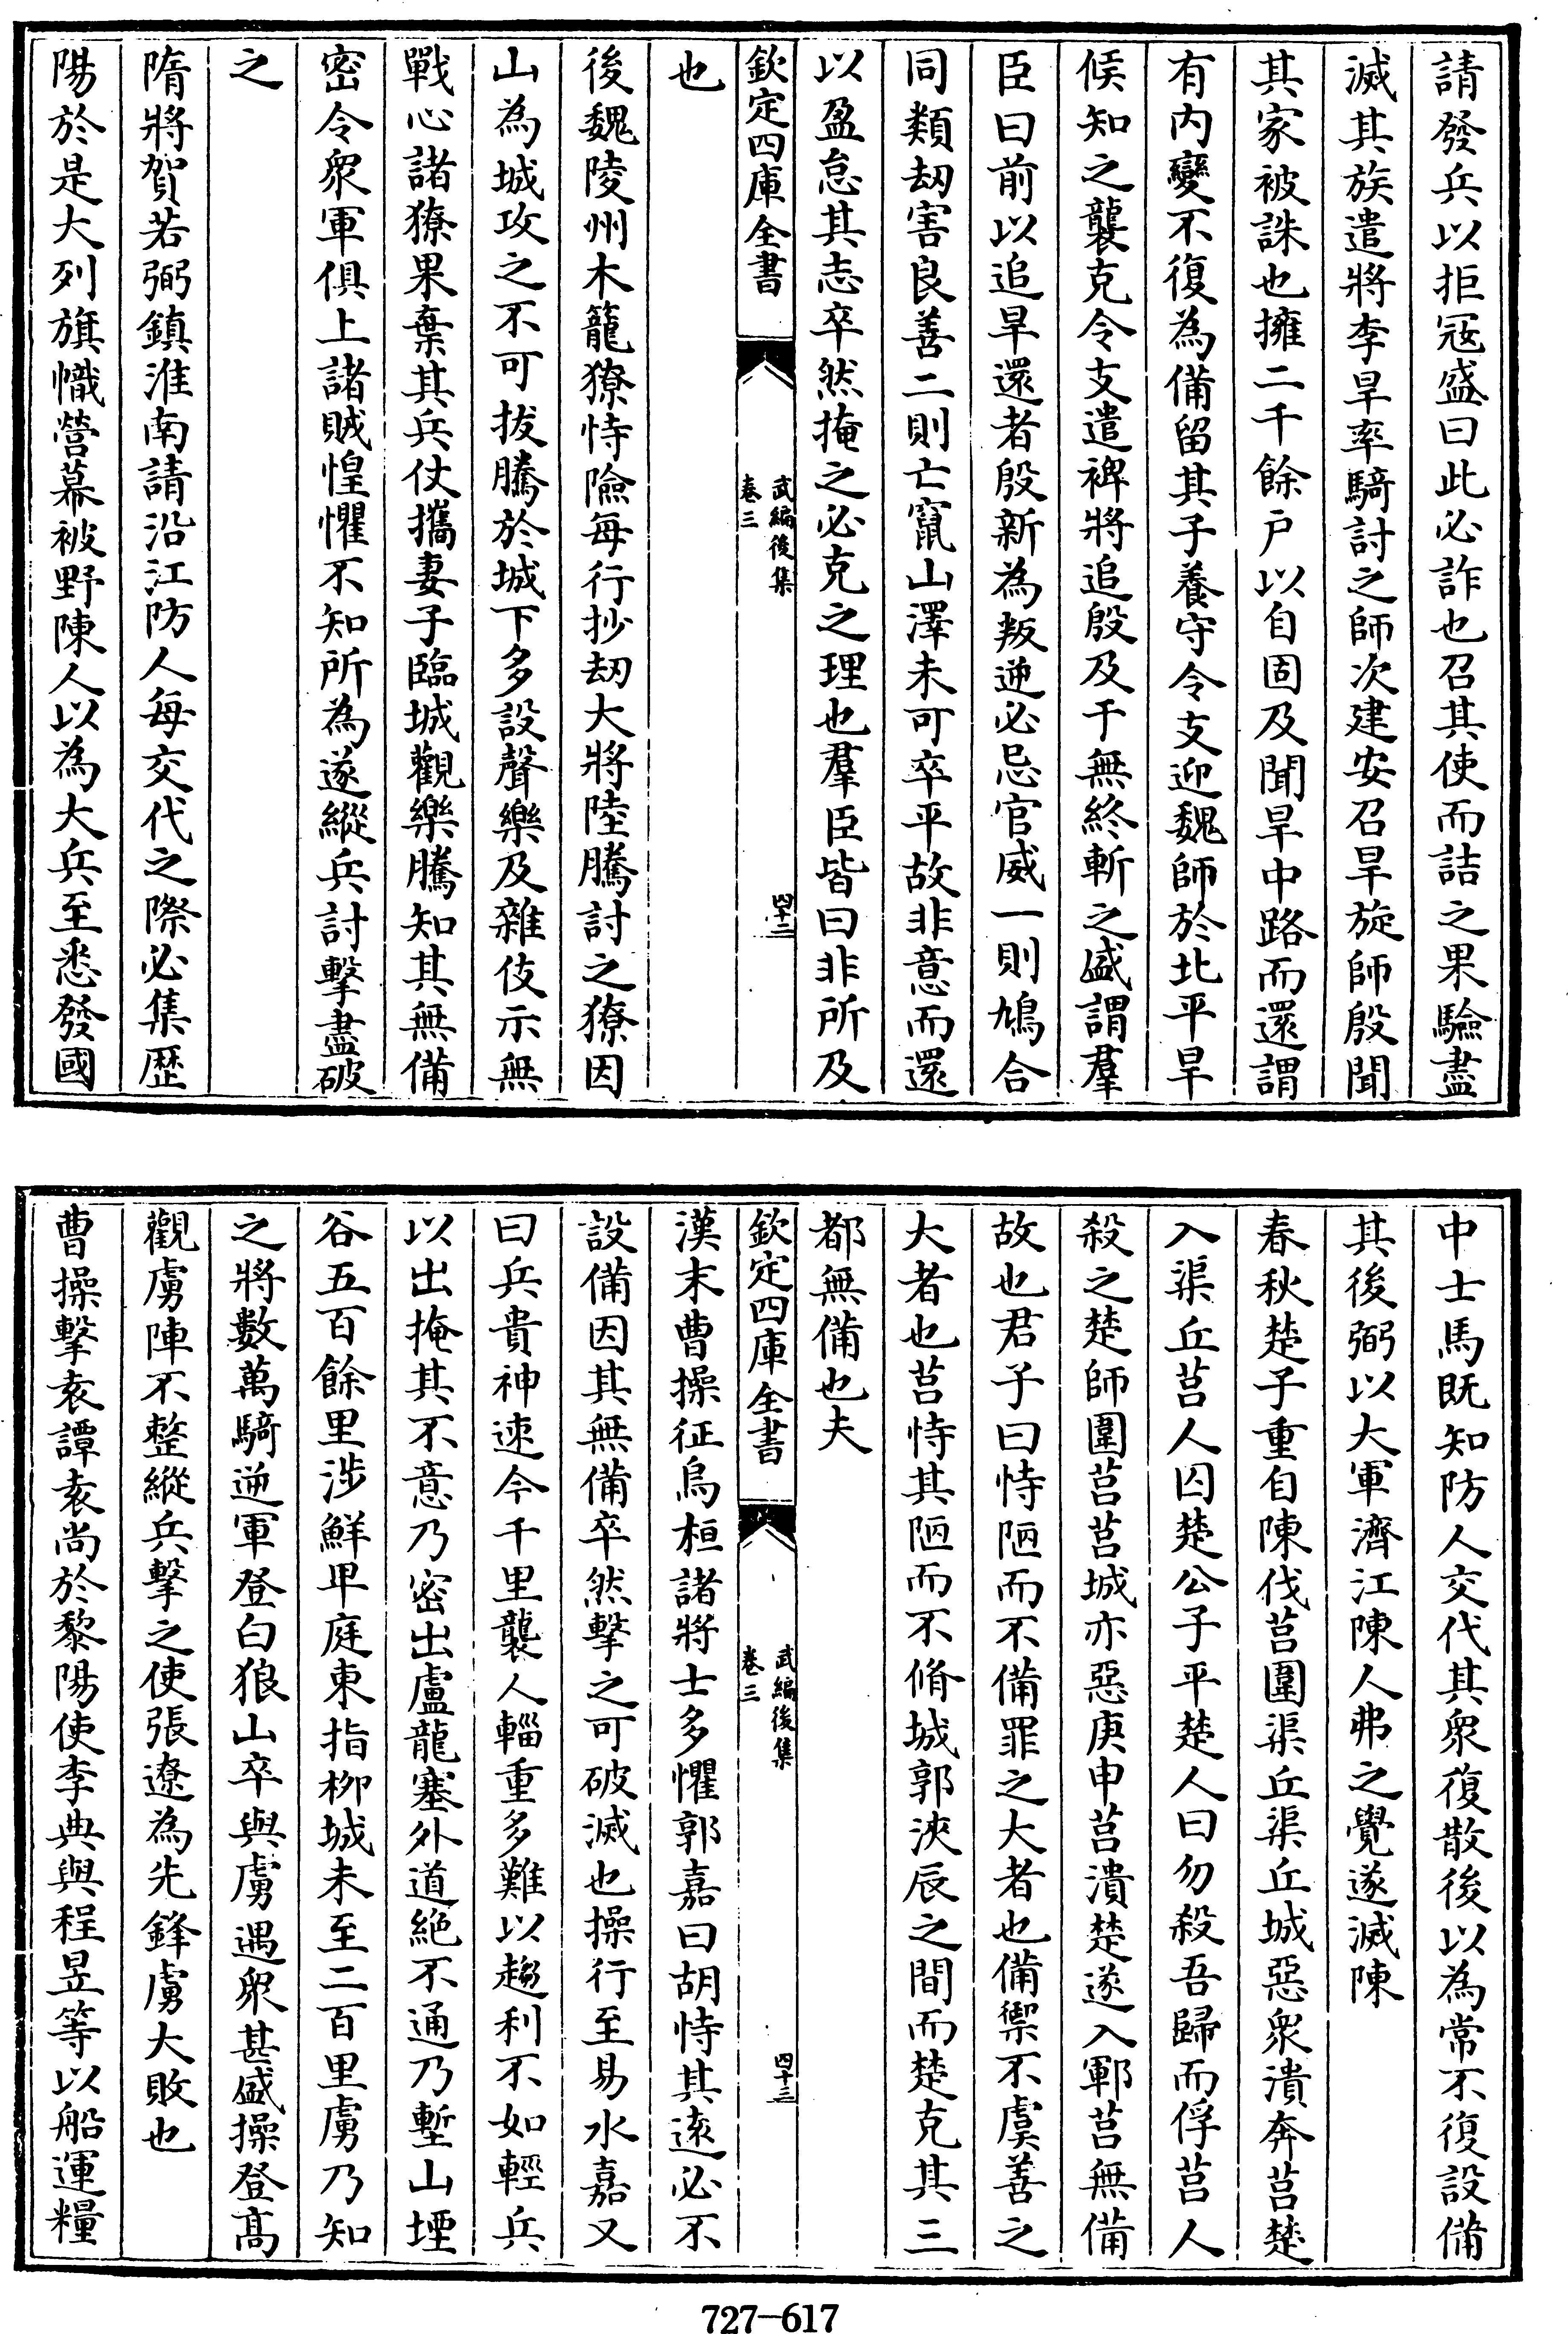 請發兵以拒冦盛曰此必詐也召其使而詰之果驗盡
滅其族遣將李旱率騎討之師次建安召旱旋師殷聞
其家被誅也擁二千餘户以自固及聞旱中路而還謂
有内變不復為備留其子養守令支迎魏師於北平旱
候知之襲克令支遣裨將追殷及于無終斬之盛謂羣
臣曰前以追旱還者殷新為叛逆必忌官威一則鳩合
同類刼害良善二則亡竄山澤未可卒平故非意而還
以盈怠其志卒然掩之必克之理也羣臣皆曰非所及
欽定四庫全書
武編後集
卷三
四十二
也
後魏陵州木籠獠恃險每行抄刼大將陸騰討之獠因
山為城攻之不可拔騰於城下多設聲樂及雜伎示無
戰心諸獠果棄其兵仗攜妻子臨城觀樂騰知其無備
密令衆軍俱上諸賊惶懼不知所為遂縱兵討擊盡破
之
隋將賀若弼鎮淮南請沿江防人每交代之際必集歷
陽於是大列旗幟營幕被野陳人以為大兵至悉發國
中士馬既知防人交代其衆復散後以為常不復設備
其後弼以大軍濟江陳人弗之覺遂滅陳
春秋楚子重自陳伐莒圍渠丘渠丘城惡衆潰奔莒楚
入渠丘莒人囚楚公子平楚人曰勿殺吾歸而俘莒人
殺之楚師圍莒莒城亦惡庚申莒潰楚遂入鄆莒無備
故也君子曰恃陋而不備罪之大者也備禦不虞善之
大者也莒恃其陋而不脩城郭浹辰之間而楚克其三
都無備也夫
欽定四庫全書
武編後集
卷三
四十三
漢末曹操征烏桓諸將士多懼郭嘉曰胡恃其遠必不
設備因其無備卒然擊之可破滅也操行至易水嘉又
曰兵貴神速今千里襲人輜重多難以趨利不如輕兵
以出掩其不意乃密出盧龍塞外道絶不通乃塹山堙
谷五百餘里涉鮮卑庭東指柳城未至二百里虜乃知
之將數萬騎逆軍登白狼山卒與虜遇衆甚盛操登高
觀虜陣不整縱兵擊之使張遼為先鋒虜大敗也
曹操擊袁譚袁尚於黎陽使李典與程昱等以船運糧
727—617